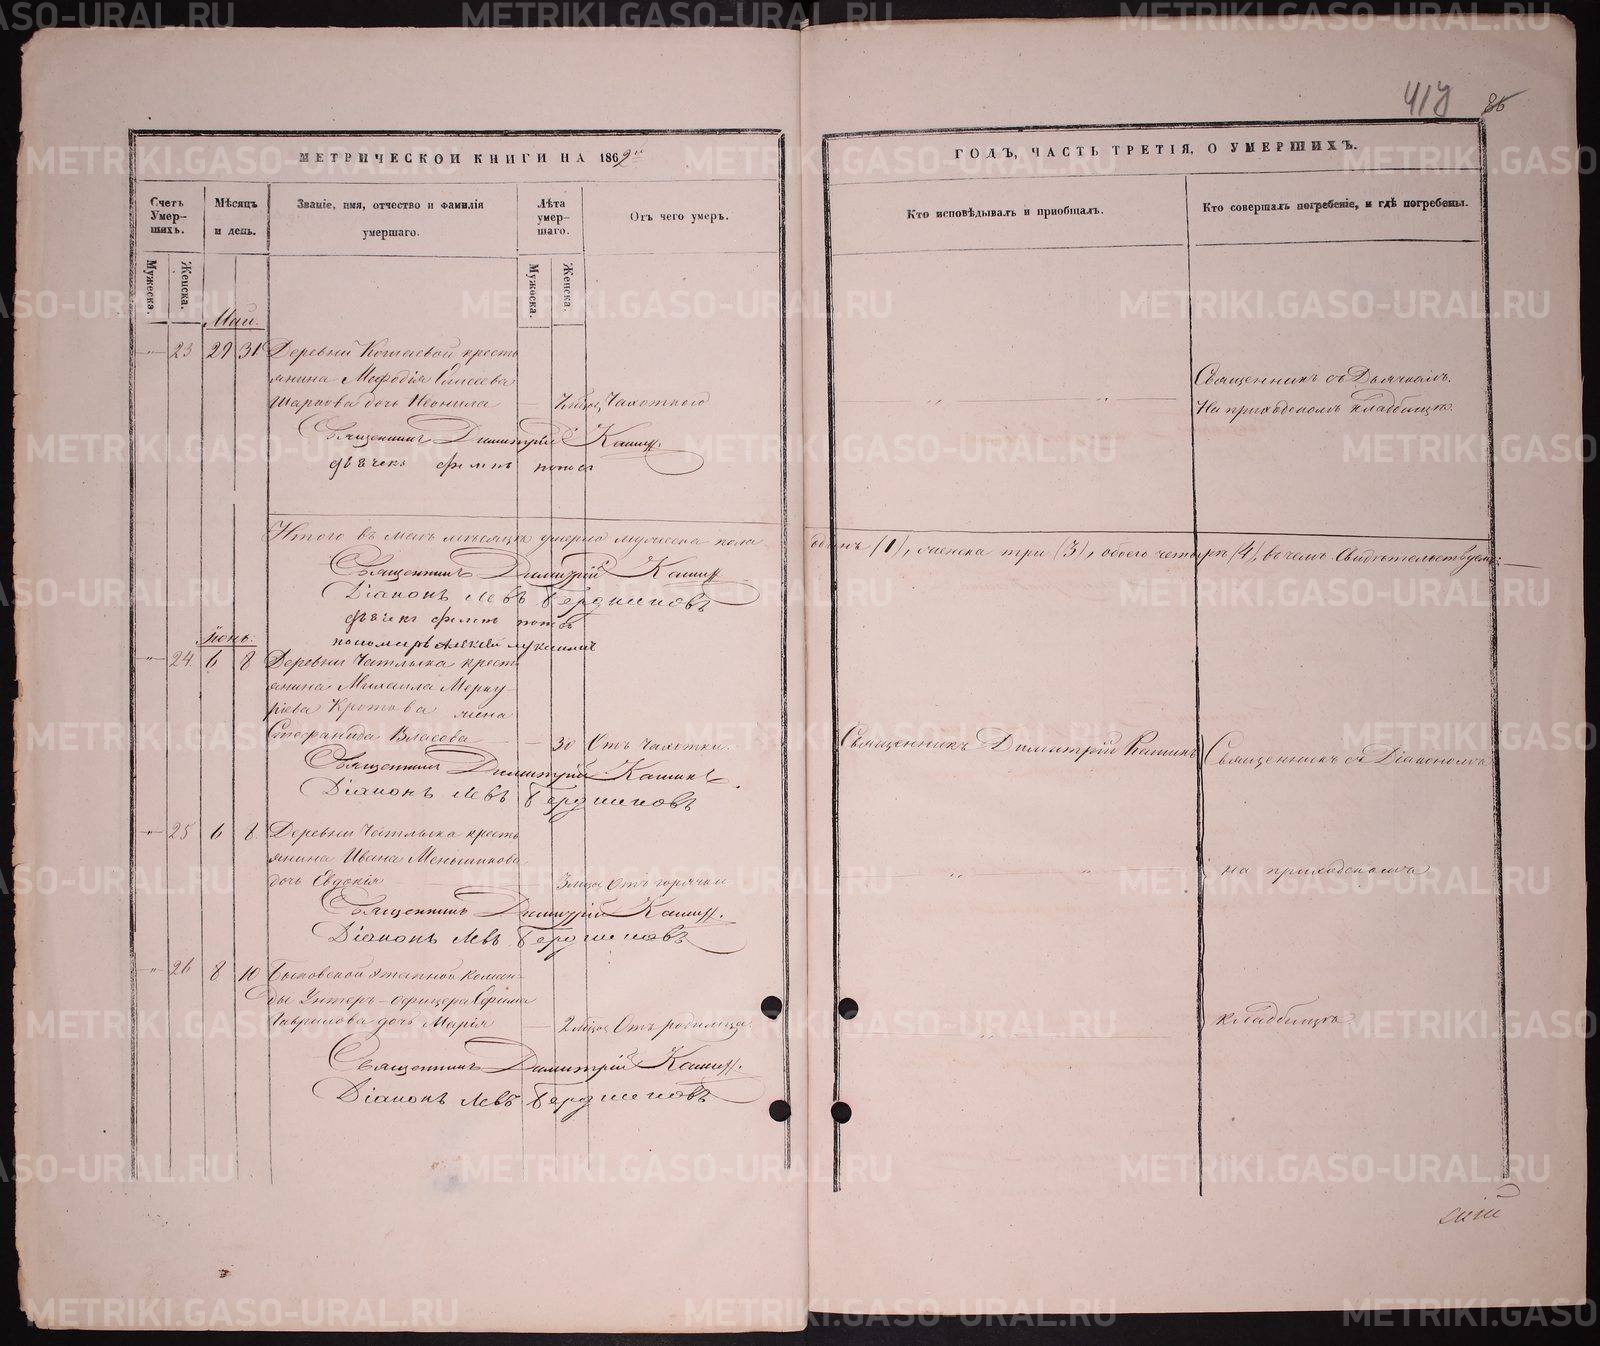 418 86
МЕТРИЧЕСКОЙ КНИГИ НА 1869й
Счетъ Умер-шихъ.
Мѣсяцъ и день.
Званіе, имя, отчество и фамилія умершаго.
Лѣта умер-шаго.
Отъ чего умеръ.
Мужеска.
Женска.
Мужеска.
Женска.
Май.
23 29 31 Деревни Кошаевой кресть
янина Меѳодія Елисеева
дочь Неонила Чахоткою
Священникъ Димитрій Кашинъ
дьячекъ
Итого въ маѣ мѣсяцѣ умерло мужеска пола
Священникъ Димитрій Кашинъ
Діаконъ Левъ Бердниковъ
дьячекъ
пономарь Алексѣй
Іюнь.
24. 6 8 Деревни Чатлыка кресть
янина Михаила Мерку-
ріева Кротова жена
Стефанида Власова 30 Отъ Чахотки.
Священникъ Димитрій Кашинъ
Діаконъ Левъ Бердниковъ
25 6 8 Деревни Чатлыка кресть
янина Ивана Меньшикова
дочь Евдокія 3 мѣся Отъ горячки
Священникъ Димитрій Кашинъ.
Діаконъ Левъ Бердниковъ
26 8 10 Быковской этапной коман-
ды Унтеръ-офицера Ефима
Гаврилова дочь Марія 2 мѣся Отъ родимца.
Священникъ Димитрій Кашинъ.
Діаконъ Левъ Бердниковъ
ГОДЪ, ЧАСТЬ ТРЕТІЯ, О УМЕРШИХЪ.
Кто исповѣдывалъ и пріобщалъ.
Кто совершалъ погребеніе, и гдѣ погребены.
Священникъ съ Дьячкомъ.
На приходскомъ кладбищѣ.
одинъ (1), женска три (3), обоего четыре (4), въ чемъ свидѣтельствуемъ:
Священникъ Димитрій Кашинъ
Священникъ съ Діакономъ
на приходскомъ
кладбищѣ
скій
METRIKI.GASO-URAL.RU